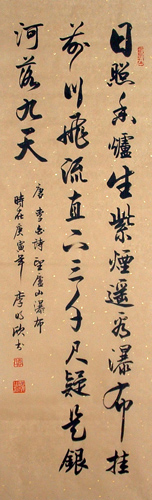 日照香爐生紫煙遙看瀑布挂
前川飛流直下三千尺疑是銀
河落九天
唐李白詩望廬山瀑布
時在庚寅年李